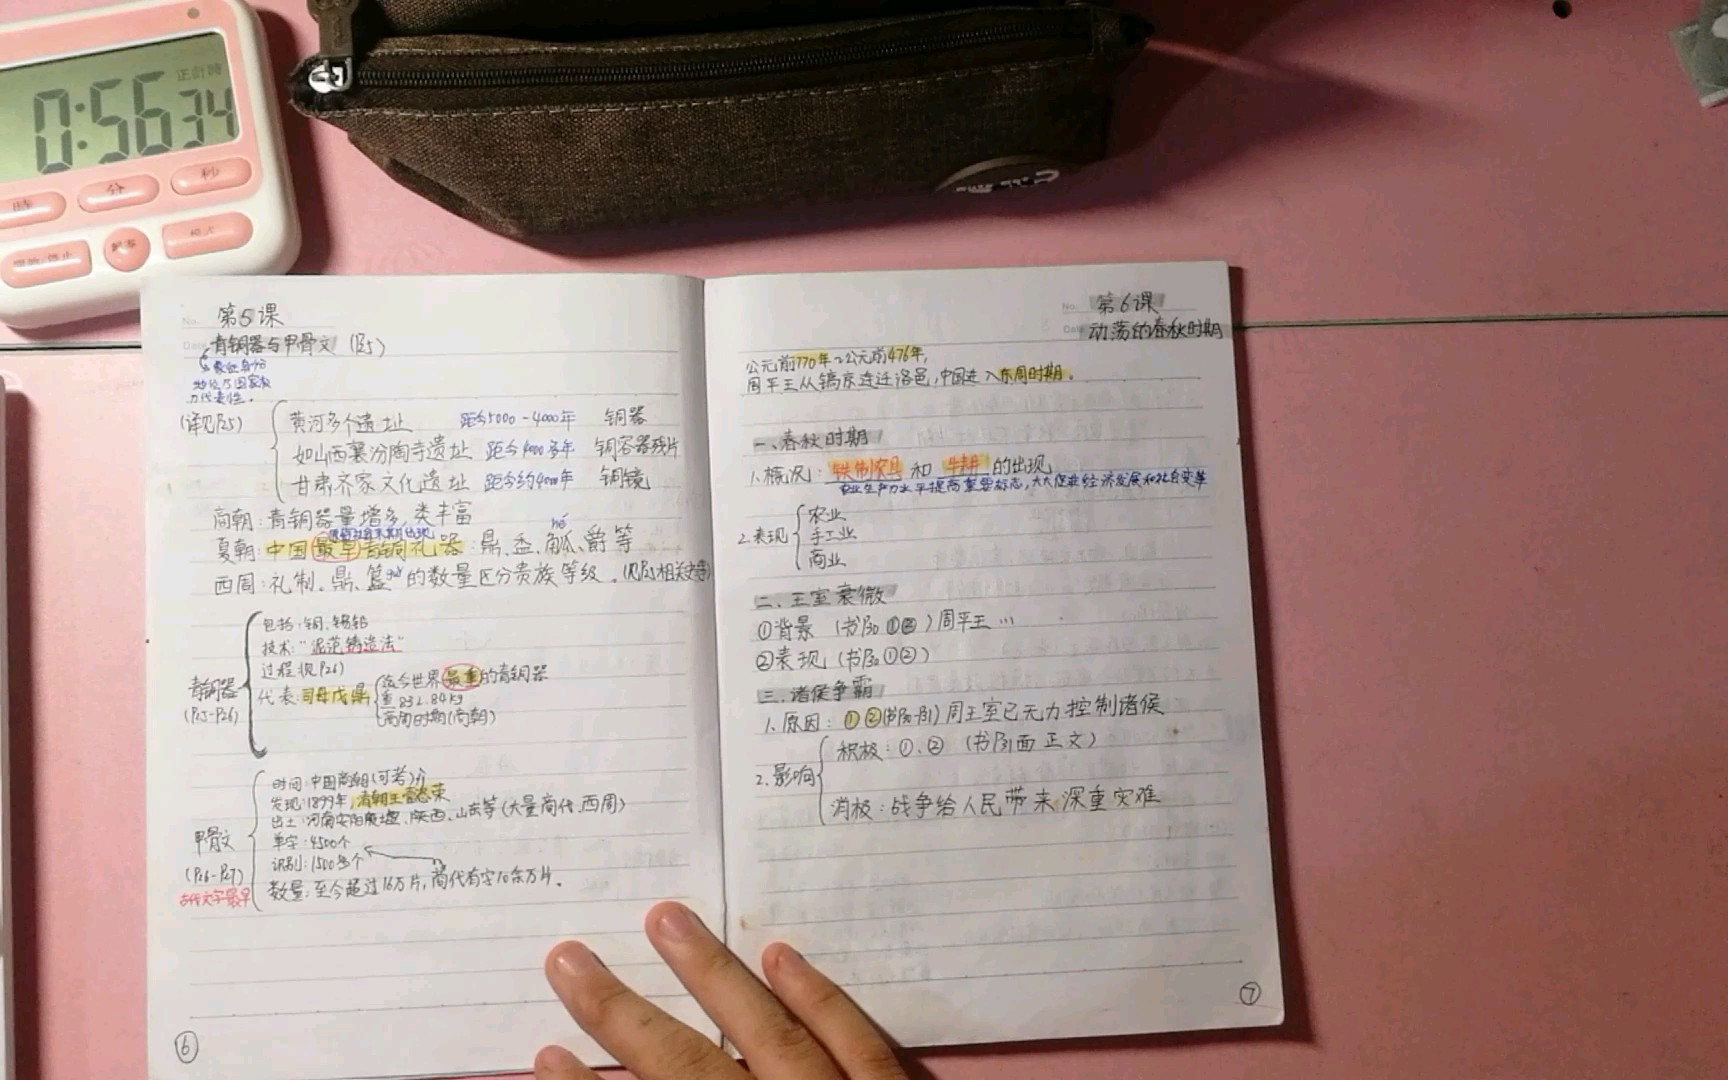 0:56 34
正計時
時
分
秒
開始/停止
第5课
青铜器与甲骨文 (P25)
象征身份
地位及国家权
力代表性。
(详见P25)
黄河多个遗址 距今5000-4000年 铜器
如山西襄汾陶寺遗址 距今4000多年 铜容器残片
甘肃齐家文化遗址 距今约4000年 铜镜
商朝:青铜器量增多,类丰富
夏朝:中国最早青铜礼器:鼎、盉、觚、爵等
hé
西周:礼制。鼎、簋的数量区分贵族等级。
青铜器
(P25-P26)
包括:铜、锡铅
技术:“泥范铸造法”
过程:(P26)
代表:司母戊鼎
迄今世界最重的青铜器
重832.84kg
商周时期(商朝)
甲骨文
(P26-P27)
古代文字最早
时间:中国商朝(可考)
发现:1899年,清朝王懿荣
出土:河南安阳殷墟、陕西、山东等(大量商代、西周)
单字:4500个
识别:1500多个
数量:至今超过16万片,商代有字10余万片。
6
第6课
动荡的春秋时期
公元前770年~公元前476年,
周平王从镐京连迁洛邑,中国进入东周时期。
一、春秋时期
1.概况:铁制农具和牛耕的出现
农业生产力水平提高重要标志,大大促进经济发展和社会变革
2.表现
农业
手工业
商业
二、王室衰微
①背景 (书P30 ①②)周平王…
②表现 (书P30 ①②)
三、诸侯争霸
1.原因:①②(书P30-P31)周王室已无力控制诸侯
2.影响
积极:①、② (书P31面正文)
消极:战争给人民带来深重灾难
7